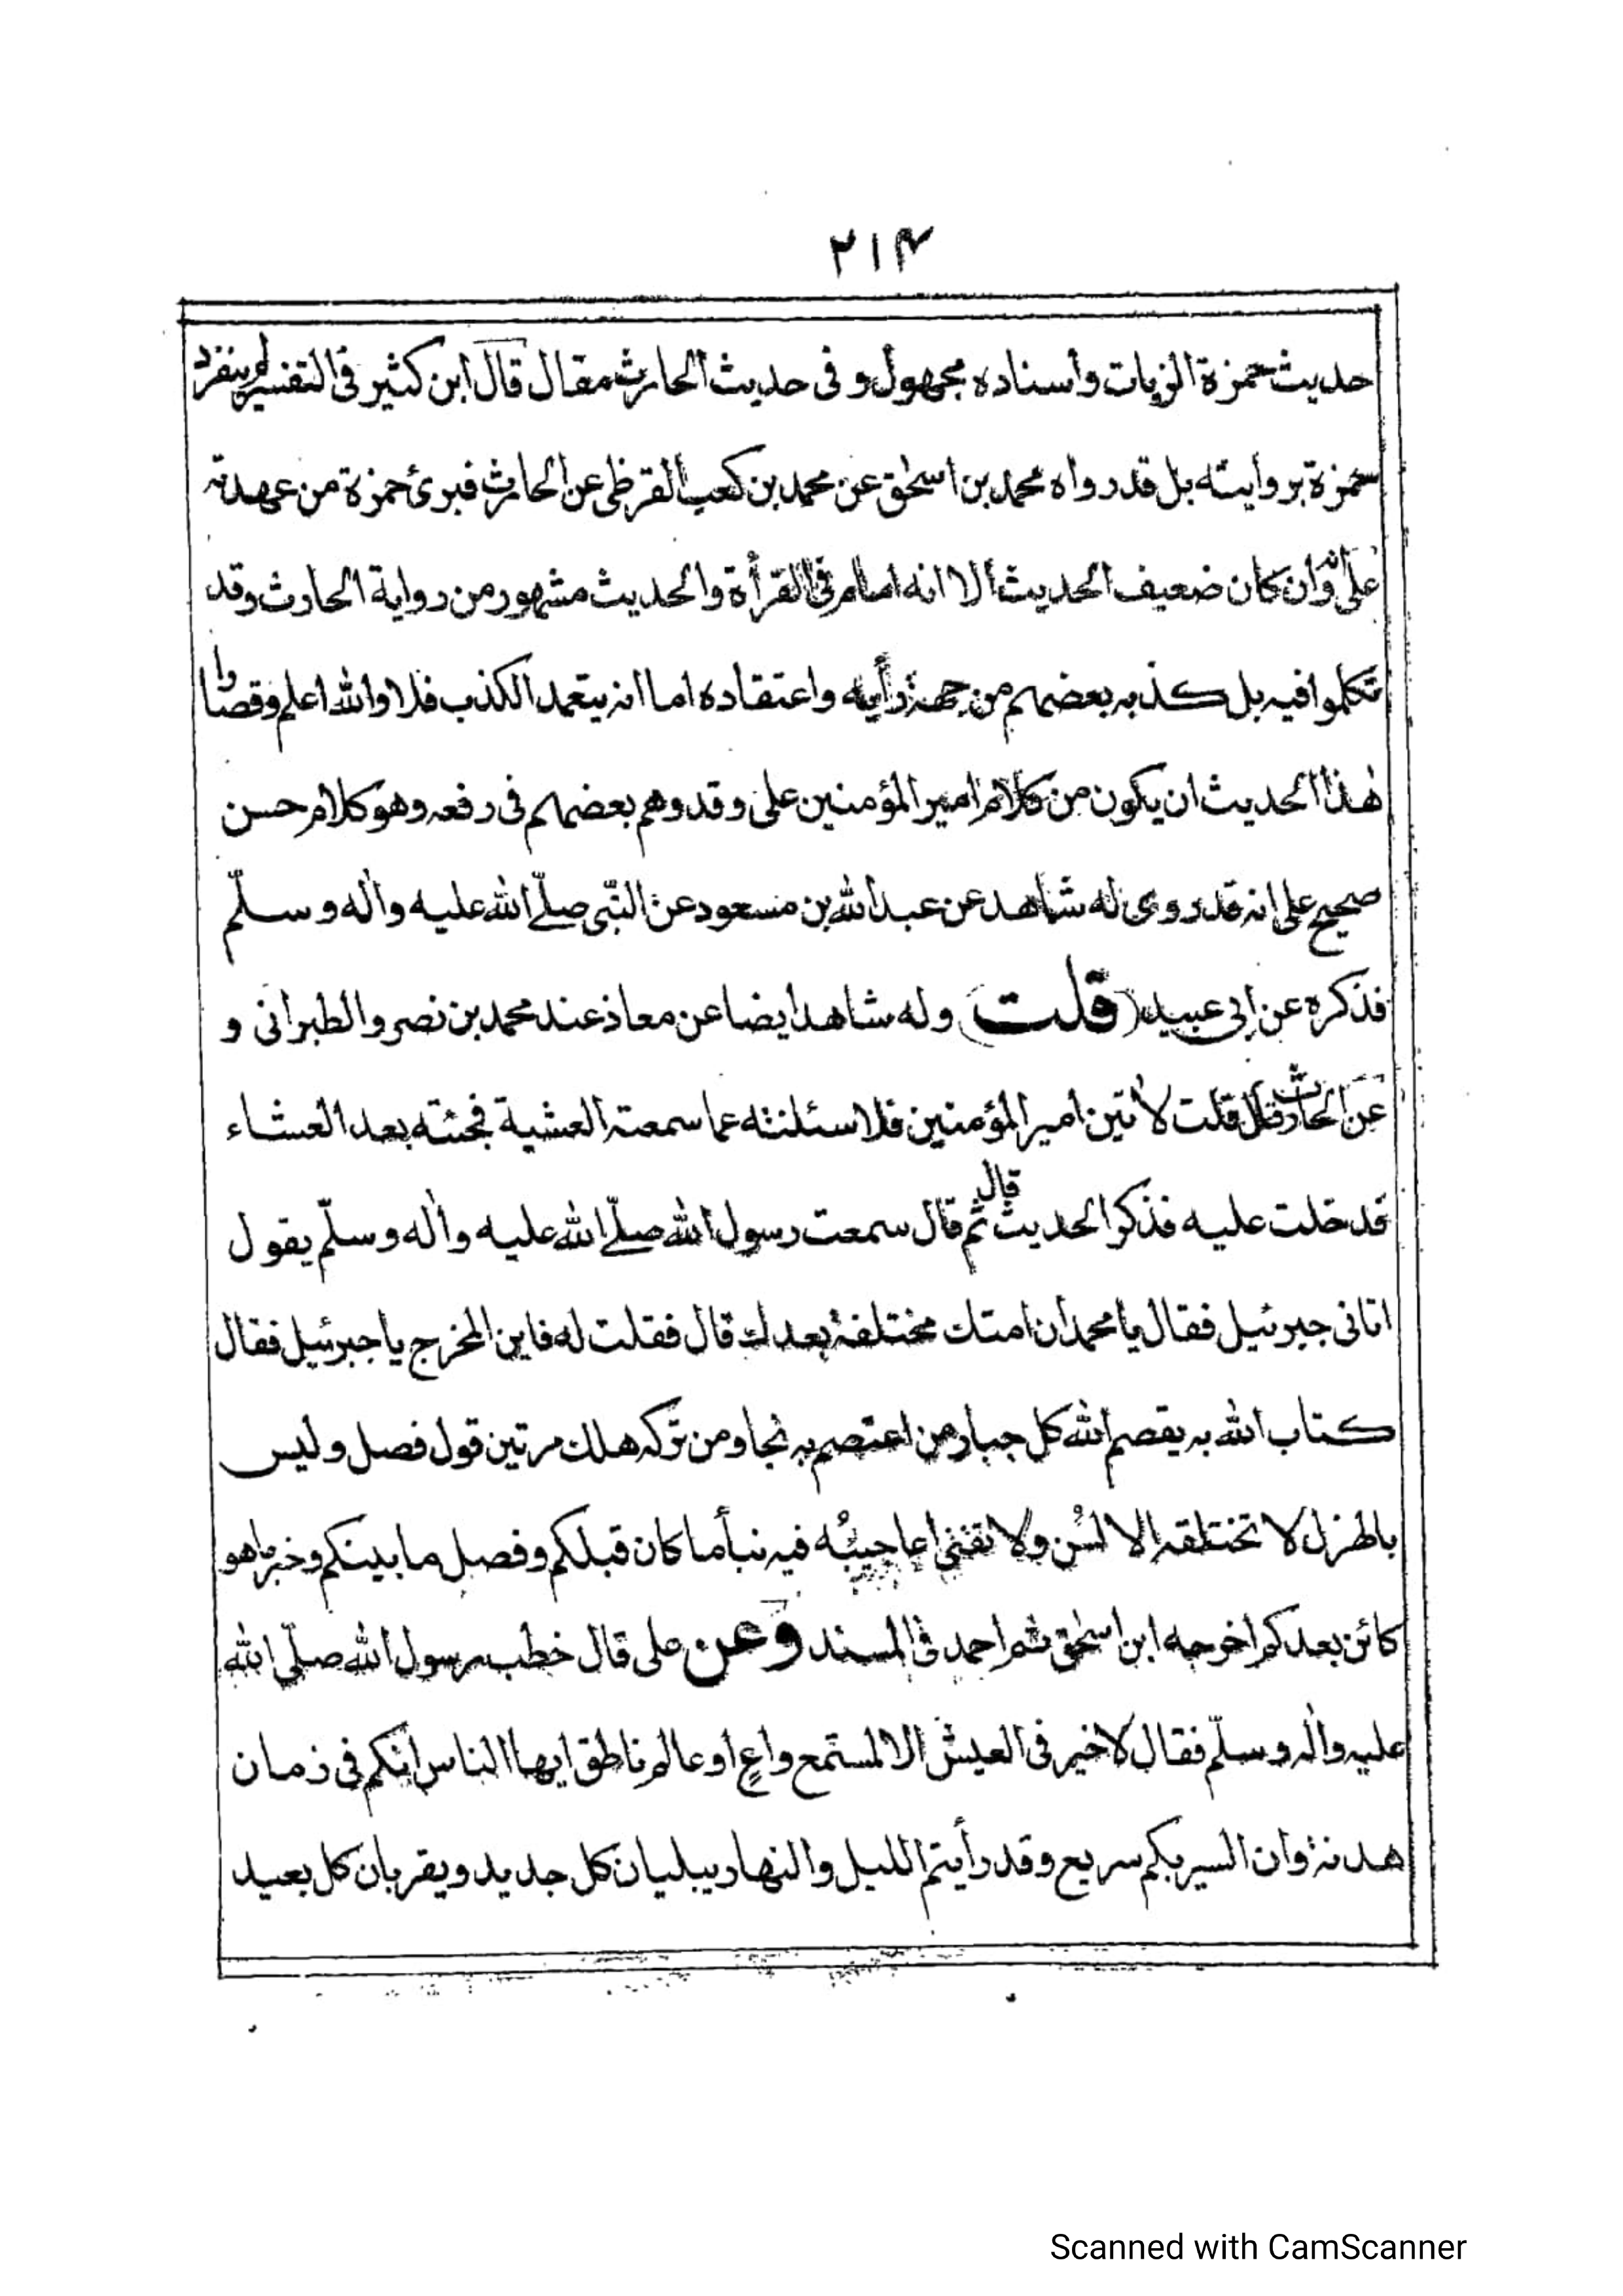 ٢١٤
حديث حمزة الزيات وأسناده مجهول وفى حديث الحارث مقال قال ابن كثير فى التفسير لم ينفرد
حمزة بروايته بل قد رواه محمد بن اسحٰق عن محمد بن كعب القرظى عن الحارث فبرئ حمزة من عهدته
على انه وان كان ضعيف الحديث الا انه امام فى القرأة والحديث مشهور من رواية الحارث وقد
تكلموا فيه بل كذبه بعضهم من جهة رأيه واعتقاده اما انه يتعمد الكذب فلا والله اعلم وقصارا
هٰذا الحديث ان يكون من كلام امير المؤمنين على وقد وهم بعضهم فى رفعه وهو كلام حسن
صحيح على انه قد روى له شاهد عن عبد الله بن مسعود عن النّبى صلّى الله عليه واٰله وسلّم
فذكره عن ابى عبيد (قلت) وله شاهد ايضا عن معاذ عند محمد بن نصر والطبرانى و
عن الحارث قال قلت لأتين امير المؤمنين فلاسئلنه عما سمعته العشية فجئته بعد العشاء
قد خلت عليه فذكر الحديث قال ثم قال سمعت رسول الله صلّى الله عليه واٰله وسلّم يقول
اتانى جبرئيل فقال يا محمد ان امتك مختلفة بعدك قال فقلت له فاين المخرج يا جبرئيل فقال
كتاب الله به يقصم الله كل جبار من اعتصم به نجا ومن تركه هلك مرتين قول فصل وليس
بالهزل لا تختلقه الا لسُن ولا تفنى اعاجيبُه فيه نبأ ما كان قبلكم وفصل ما بينكم وخبر ما هو
كائن بعدكم اخرجه ابن اسحٰق ثم احمد فى المسند وعن على قال خطب رسول الله صلّى الله
عليه واٰله وسلّم فقال لا خير فى العيش الا لمستمع واعٍ او عالم ناطق ايها الناس انكم فى زمان
هدنة وان السير بكم سريع وقد رأيتم الليل والنهار يبليان كل جديد ويقربان كل بعيد
Scanned with CamScanner